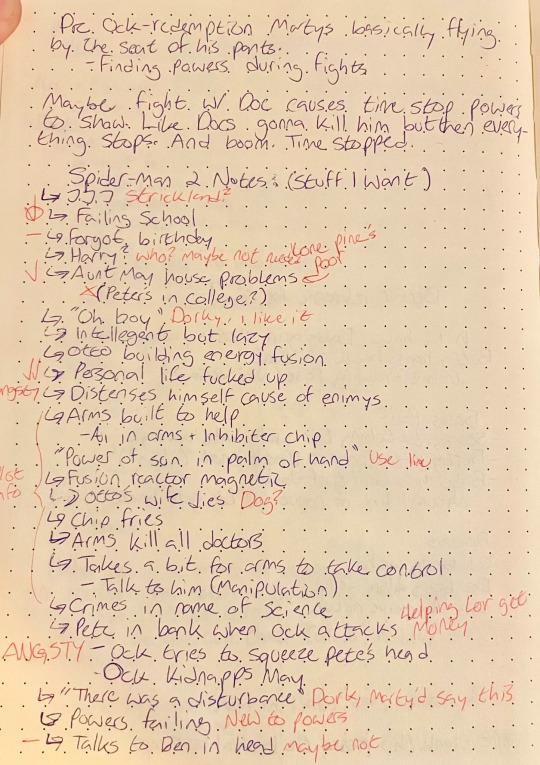 Pre Ock-redemption Martys basically flying
by the seat of his pants.
- Finding powers during fights
Maybe fight w/ Doc causes time stop powers
to show. Like Docs gonna kill him but then every-
thing stops. And boom. Time stopped.
Spider-Man 2 Notes: (Stuff I want)
↳ J.J.J Strickland?
↳ Failing School
- ↳ Forgot birthday
↳ Harry? who? maybe not need lone pine's
✓ ↳ Aunt May house problems poof
X (Peter's in college?)
↳ "Oh boy" Dorky, I like it
↳ Intellegent but lazy
↳ Otto building energy fusion
↳ Personal life fucked up
angsty ↳ Distenses himself cause of enimys
↳ Arms built to help
- Ai in arms + Inhibiter chip
"Power of sun in palm of hand" Use line
↳ Fusion reactor magnetic
↳ Otto's wife dies Dog?
info ↳ Chip fries
↳ Arms kill all doctors
↳ Takes a bit for arms to take control
- Talk to him (Manipulation)
↳ Crimes in name of Science
↳ Pete in bank when Ock attacks Helping Lor get money
ANGSTY - Ock tries to squeeze Pete's head
- Ock kidnapps May
↳ "There was a disturbance" Dork, Marty'd say this
↳ Powers failing New to powers
- ↳ Talks to Ben in head maybe not